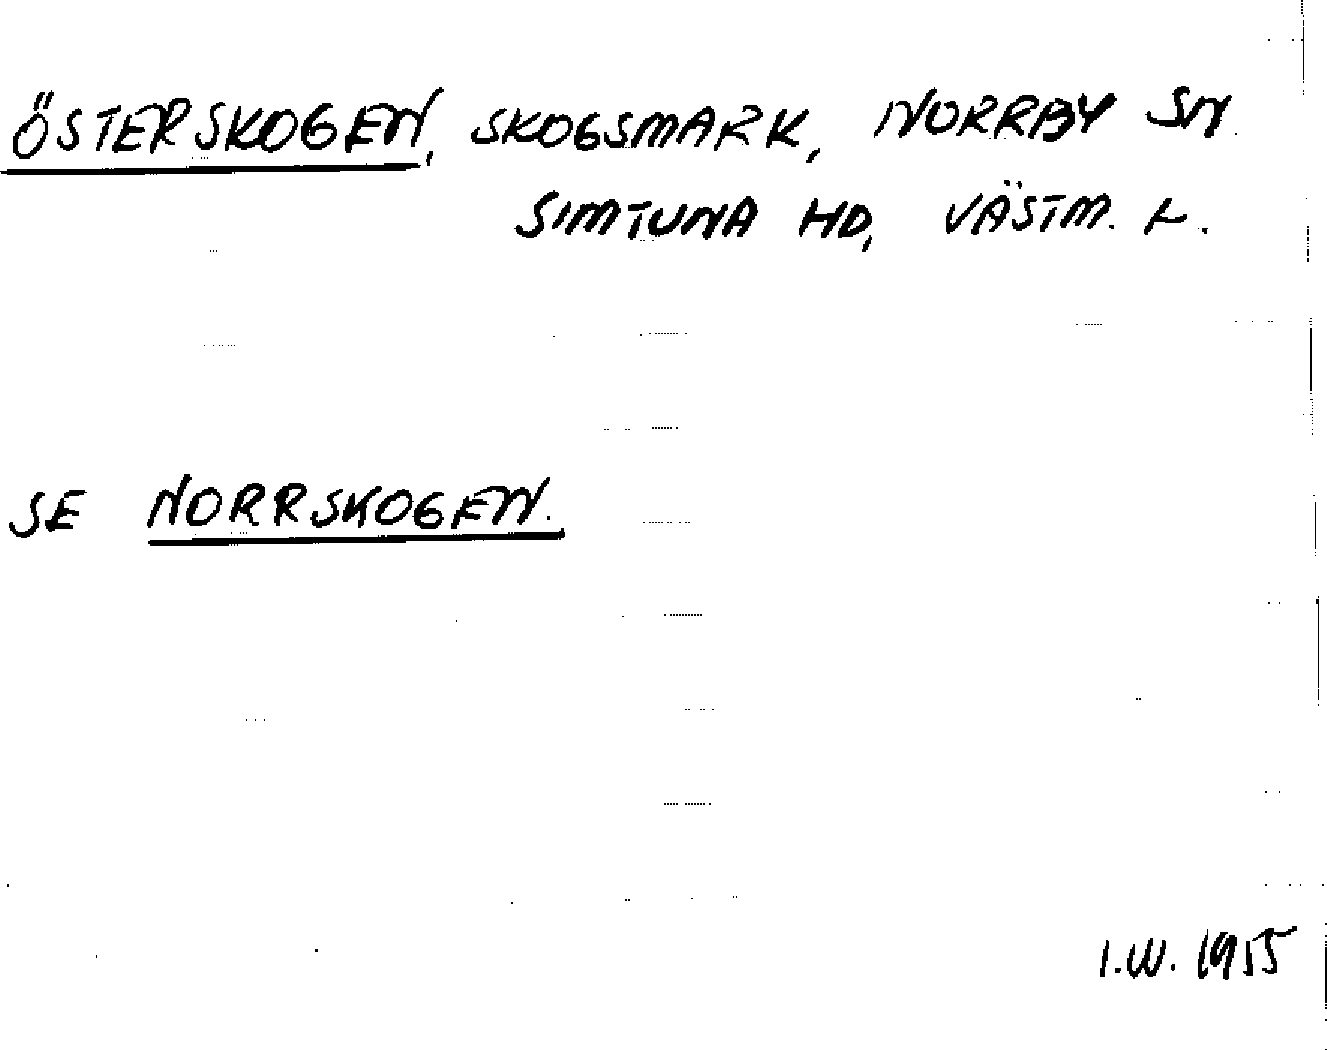 ÖSTERSKOGEN, SKOGSMARK, NORRBY SN.
SIMTUNA HD, VÄSTM. L.
SE NORRSKOGEN.
I.W. 1955